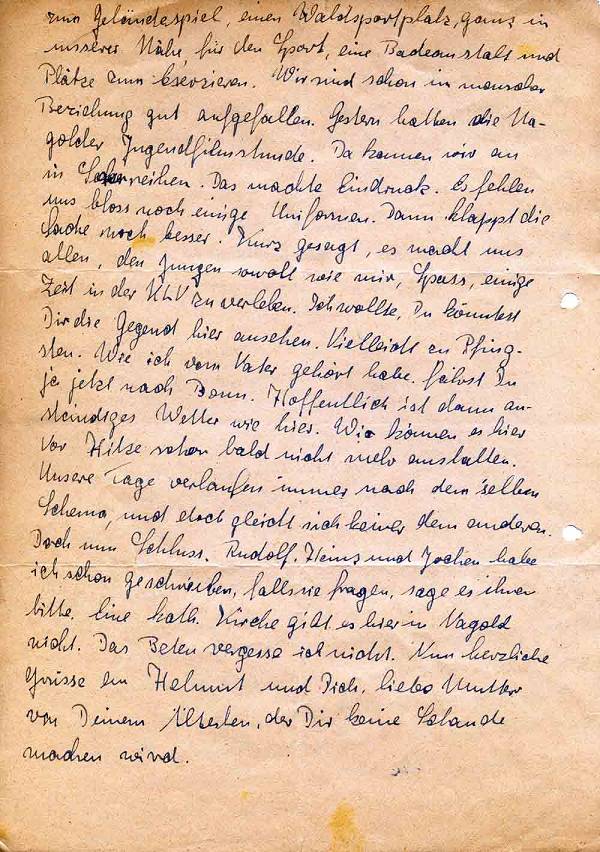 zum Geländespiel, einen Waldsportplatz, ganz in
unserer Nähe, für den Sport, eine Badeanstalt und
Plätze zum Exerzieren. Wir sind schon in mancher
Beziehung gut aufgefallen. Gestern hatten die Na-
golder Jugendfilmstunde. Da kamen wir an
in Scharreihen. Das machte Eindruck. Es fehlen
uns bloss noch einige Uniformen. Dann klappt die
Sache noch besser. Kurz gesagt, es macht uns
allen, den Jungen sowohl wie mir, Spass, einige
Zeit in der KLV zu verleben. Ich wollte, Du könntest
Dir die Gegend hier ansehen. Vielleicht zu Pfing-
sten. Wie ich vom Vater gehört habe, fährst Du
ja jetzt nach Bonn. Hoffentlich ist dann an-
ständiges Wetter wie hier. Wir können es hier
vor Hitze schon bald nicht mehr aushalten.
Unsere Tage verlaufen immer nach dem selben
Schema, und doch gleicht sich keiner dem anderen.
Doch nun Schluss. Rudolf, Heinz und Jochen habe
ich schon geschrieben, falls sie fragen, sage es ihnen
bitte. Eine kath. Kirche gibt es hier in Nagold
nicht. Das Beten vergesse ich nicht. Nun herzliche
Grüsse an Helmut und Dich, liebe Mutter
von Deinem Ältesten, der Dir keine Schande
machen wird.